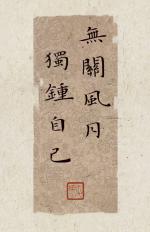 無關風月
獨鍾自己